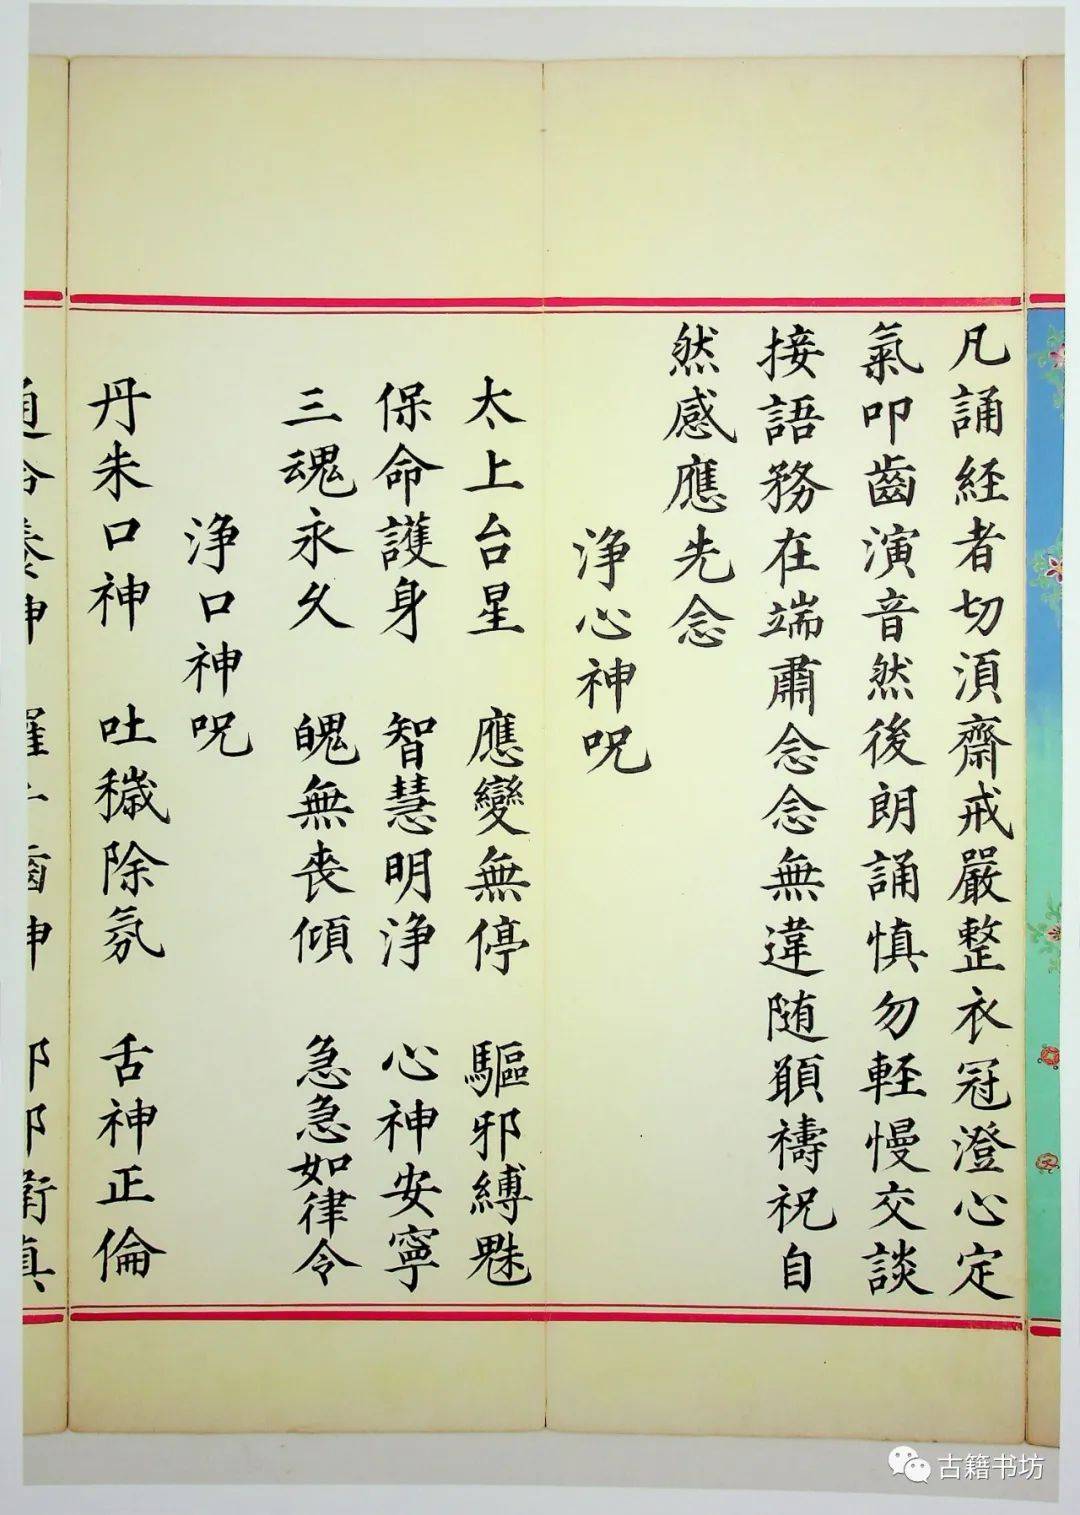 凡誦経者切須齋戒嚴整衣冠澄心定
氣叩齒演音然後朗誦慎勿軽慢交談
接語務在端肅念念無違随願禱祝自
然感應先念
浄心神呪
太上台星 應變無停 驅邪縛魅
保命護身 智慧明浄 心神安寧
三魂永久 魄無喪傾 急急如律令
浄口神呪
丹朱口神 吐穢除氛 舌神正倫
通命養神 羅千齒神 却邪衛真
古籍书坊